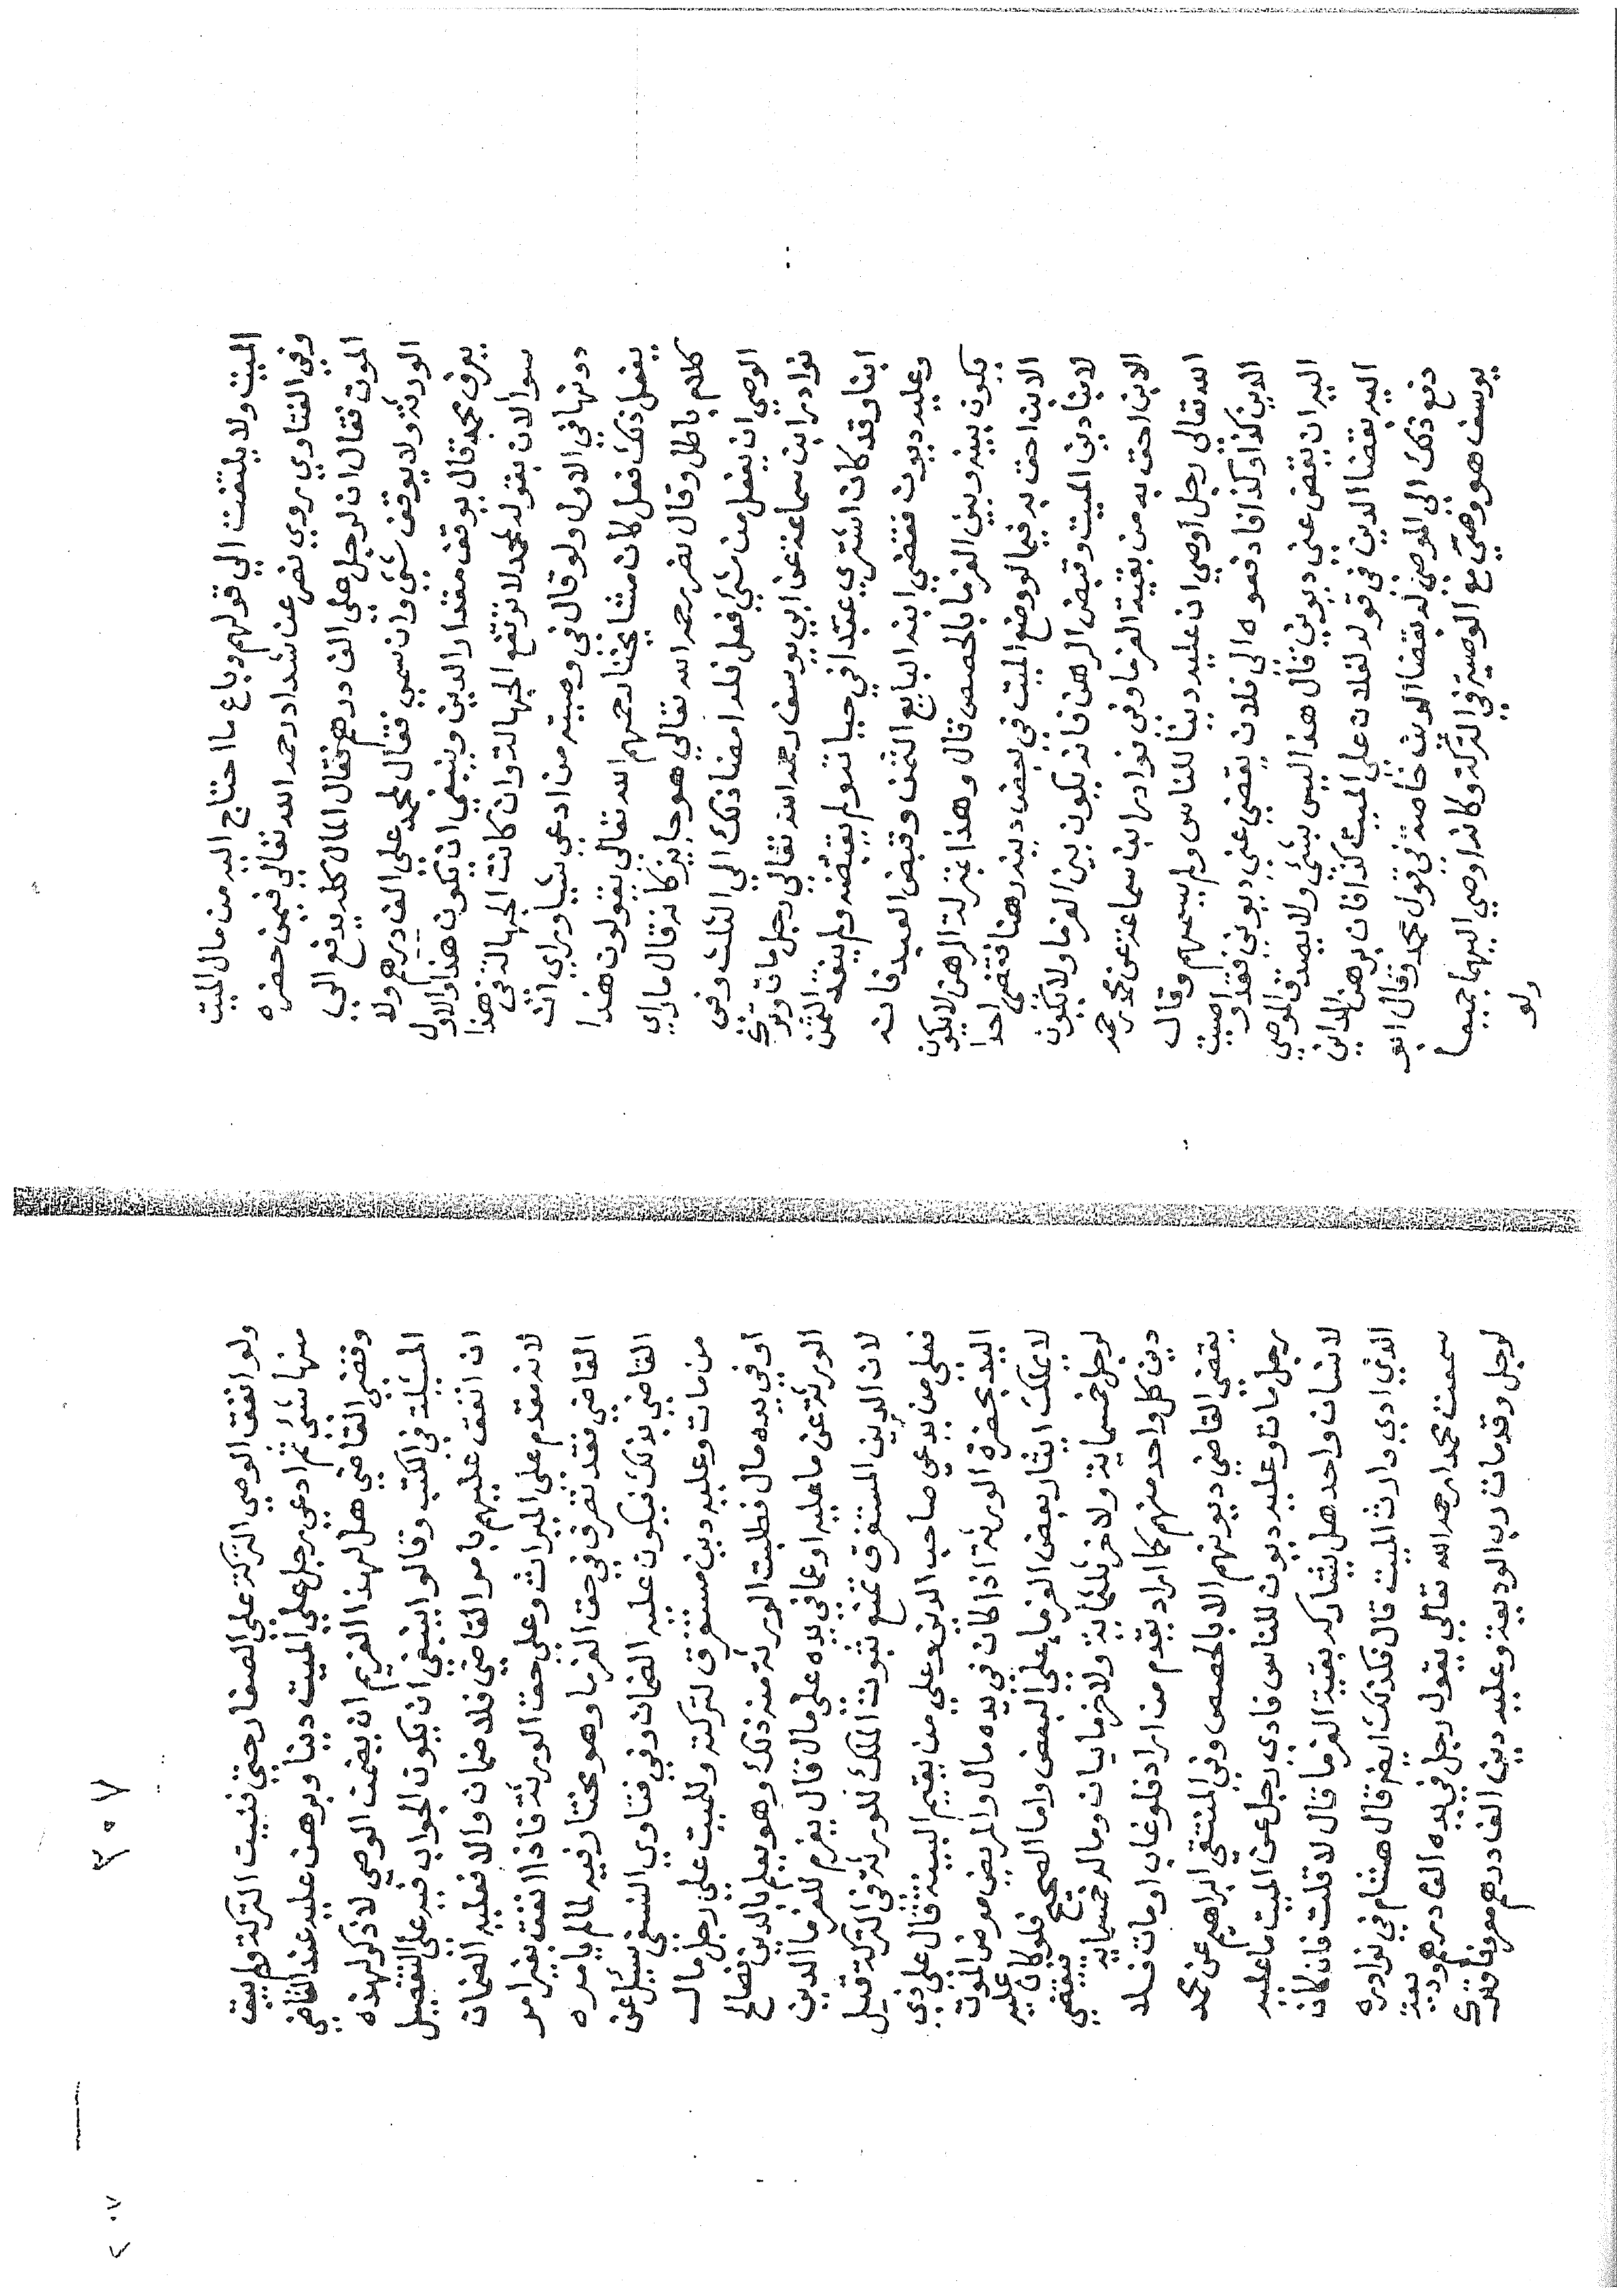 الميت ولا يلتفت الي قولهم وباع ما احتاج اليه من مال الميت
وفي الفتاوي روي نصر عن شداد رحمه الله تعالي فيمن حضره
الموت فقال ان لرجل علي الف درهم فقال المال كله يدفع الي
الورثة ولا يوقف شي وان سمي فقال لمحمد علي الف درهم ولا
يعرف محمد قال يوقف مقدار الدين وينبغي ان يكون هذا والاول
سوا لان بقوله لمحمد لا ترتفع الجهالة وان كانت الجهالة في هذا
دونها في الاول ولو قال في وصيته من ادعي شيا وراي ان
يفعل ذلك فعل كان مشايخنا رحمهم الله تعالي يقولون هذا
كلام باطل وقال نصر رحمه الله تعالي هو جايز كانه قال ما راي
الوصي ان يفعل من شي فعل فله امضا ذلك الي الثلث وفي
نوادر ابن سماعة عن ابي يوسف رحمه الله تعالي رجل مات وترك
ابنا وقد كان اشتري عبدا في حياته ولم يقبضه ولم ينقد الثمن
وعليه ديون فقضي ابنه البايع الثمن وقبض العبد فانه
يكون بينه وبين الغرما بالحصص قال وهذا بمنزلة الرهن لا يكون
الابن احق به فيما لو وضع الميت في بعض دينه رهنا فقضي احد
لابنا دين الميت وقبض الرهن فانه يكون بين الغرما ولا يكون
الابن احق به من بقية الغرما وفي نوادر ابن سماعة عن محمد رحمه
الله تعالي رجل اوصي ان عليه دينا للناس ولم يسمهم وقال
الدين كذا وكذا فادفعوه الى فلان يقضي عني ديوني فقد اوصيت
اليه ان يقضي عني ديوني قال هذا ليس بشي ولا يصدق الموصي
اليه بقضا الدين في قوله لفلان علي الميت كذا فان برهن الداين
دفع ذلك الي الموصي له بقضا الدين خاصة في قول محمد وقال ابو
يوسف هو وصي مع الوصية في التركة وكانه اوصي اليهما جميعا
ولو
٣٠٧
ولو انفق الوصي التركة علي الصغار حتي فنيت التركة ولم يبق
منها شي ثم ادعي رجل علي الميت دينا وبرهن عليه عند القاضي
وقضي القاضي هل لهذا الغريم ان يضمن الوصي لا ذكر لهذه
المسئلة في الكتب وقالوا ينبغي ان يكون الجواب فيه علي التفصيل
ان انفق عليهم بامر القاضي فلا ضمان والا فعليه الضمان
لانه مقدم علي الميراث وعلي حق الورثة فاذا انفق بغير امر
القاضي فقد تصرف في حق الغرما وهو مختار فيه لما لم يامره
القاضي بذلك فيكون عليه الضمان وفي فتاوي النسفي سئل عن
من مات وعليه دين مستغرق لتركته وللميت علي رجل مال
او في يده مال فطلبت الورثة منه ذلك وهو يعلم بالدين فصالح
الورثة عن ما عليه او عما في يده علي مال قال يغرم للغرما الدين
لان الدين المستغرق تمنع ثبوت الملك للورثة في التركة قيل
فعلي من يدعي صاحب الدين وعلي من يقيم البينة قال علي ذي
اليد بحضرة الورثة اذا كان في يده مال والمريض مرض الموت
لا يملك ايثار بعض الغرما علي البعض واما الصحيح فلو كان عليه
لرجل خمسماية ولاخر ثلثماية ولاخر مايتان وماله خمسماية فيقضي
دين كل واحد منهم كما اراد يقدم من اراد فلو غاب او مات فلا
يقضي القاضي ديونهم الا بالحصص وفي المنتقي ابراهيم عن محمد
رجل مات وعليه ديون للناس فادي رجل عن الميت ما عليه
لانسان واحد هل يشاركه بقية الغرما قال لا قلت فان كان
الذي ادي وارث الميت قال فكذلك ايضا قال هشام في نوادره
سمعت محمدا رحمه الله تعالي يقول رجل في يده الف درهم وديعة
لرجل وقد مات رب الوديعة وعليه دين الف درهم معروفا وترك